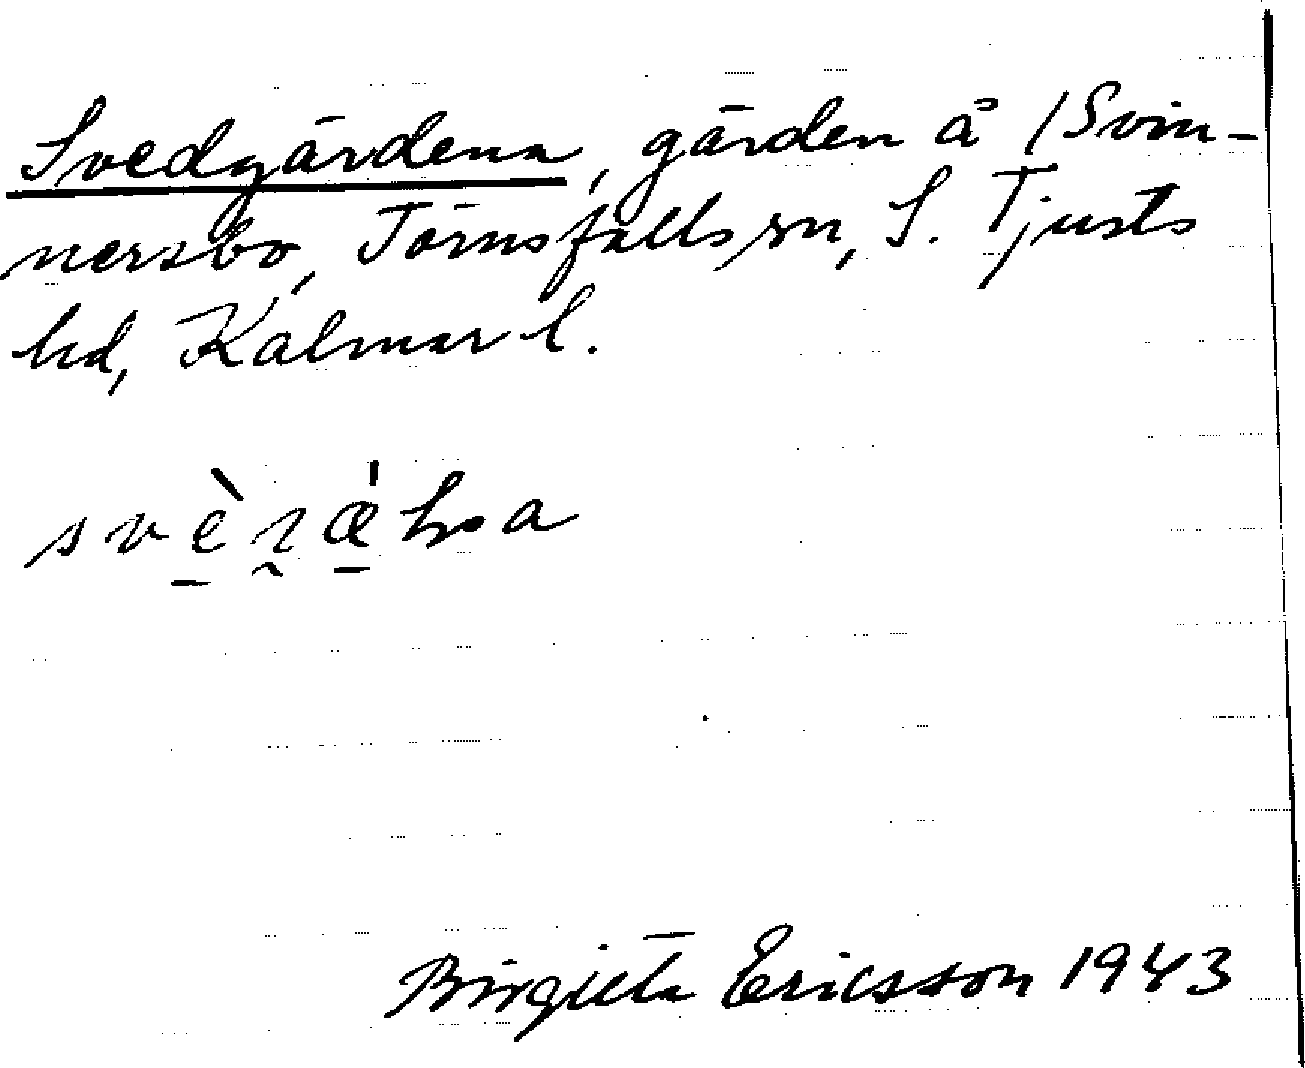 Svedgärdena, gärden å /Svin-
nersbo, Törnsfalls sn, S. Tjusts
hd, Kalmar l.
Birgitta Ericsson 1943